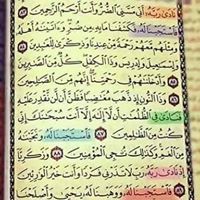 نَادَىٰ رَبَّهُۥٓ أَنِّي مَسَّنِيَ ٱلضُّرُّ وَأَنتَ أَرْحَمُ ٱلرَّٰحِمِينَ ٨٣
فَٱسْتَجَبْنَا لَهُۥ فَكَشَفْنَا مَا بِهِۦ مِن ضُرٍّ وَءَاتَيْنَٰهُ أَهْلَهُۥ
وَمِثْلَهُم مَّعَهُمْ رَحْمَةً مِّنْ عِندِنَا وَذِكْرَىٰ لِلْعَٰبِدِينَ ٨٤
وَإِسْمَٰعِيلَ وَإِدْرِيسَ وَذَا ٱلْكِفْلِ كُلٌّ مِّنَ ٱلصَّٰبِرِينَ ٨٥
وَأَدْخَلْنَٰهُمْ فِي رَحْمَتِنَآ إِنَّهُم مِّنَ ٱلصَّٰلِحِينَ ٨٦
وَذَا ٱلنُّونِ إِذ ذَّهَبَ مُغَٰضِبًا فَظَنَّ أَن لَّن نَّقْدِرَ عَلَيْهِ
فَنَادَىٰ فِي ٱلظُّلُمَٰتِ أَن لَّآ إِلَٰهَ إِلَّآ أَنتَ سُبْحَٰنَكَ إِنِّي
كُنتُ مِنَ ٱلظَّٰلِمِينَ ٨٧ فَٱسْتَجَبْنَا لَهُۥ وَنَجَّيْنَٰهُ
مِنَ ٱلْغَمِّ وَكَذَٰلِكَ نُـۨجِي ٱلْمُؤْمِنِينَ ٨٨ وَزَكَرِيَّآ
إِذْ نَادَىٰ رَبَّهُۥ رَبِّ لَا تَذَرْنِي فَرْدًا وَأَنتَ خَيْرُ ٱلْوَٰرِثِينَ ٨٩
فَٱسْتَجَبْنَا لَهُۥ وَوَهَبْنَا لَهُۥ يَحْيَىٰ وَأَصْلَحْنَا